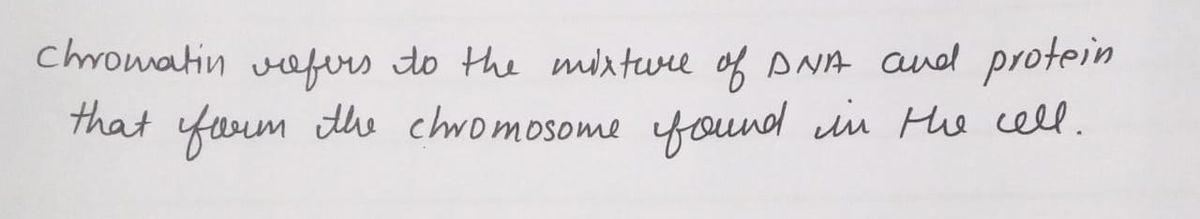 Chromatin refers to the mixture of DNA and protein
that form the chromosome found in the cell.